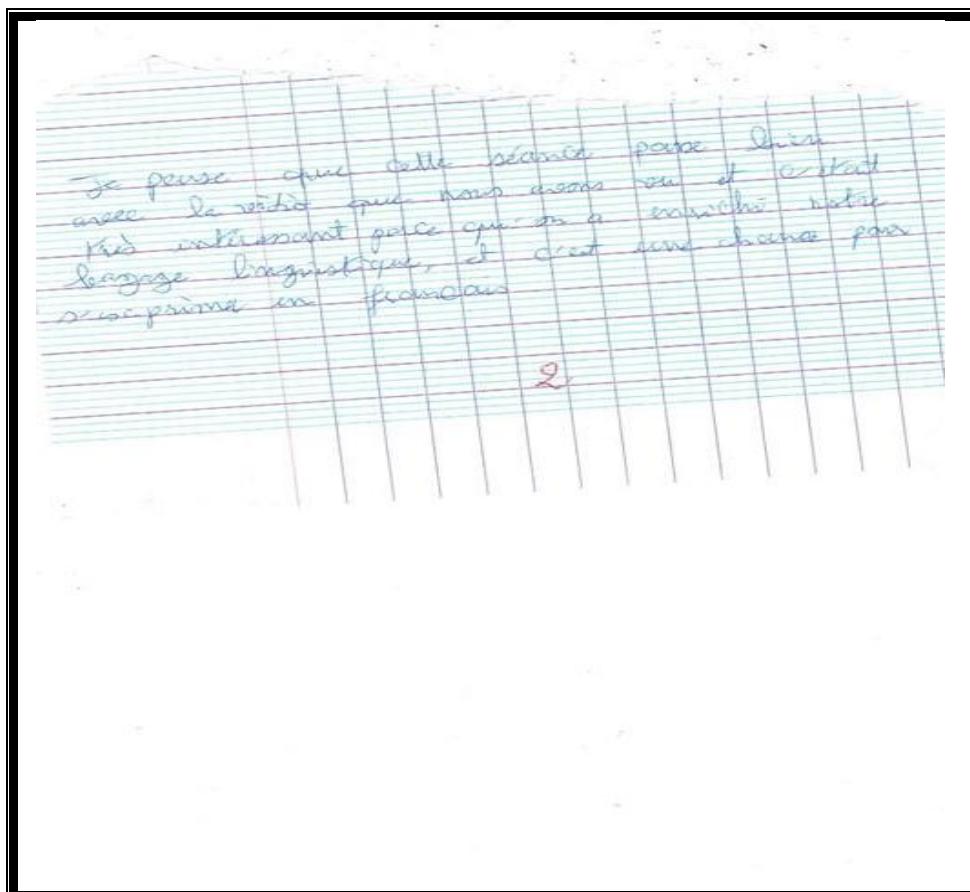 Je pense que cette séance passe bien
avec la vidéo que nous avons vu et c'était
très intéressant parce qu'on a enrichi notre
bagage linguistique, et c'est une chance pour
s'exprimer en français
2